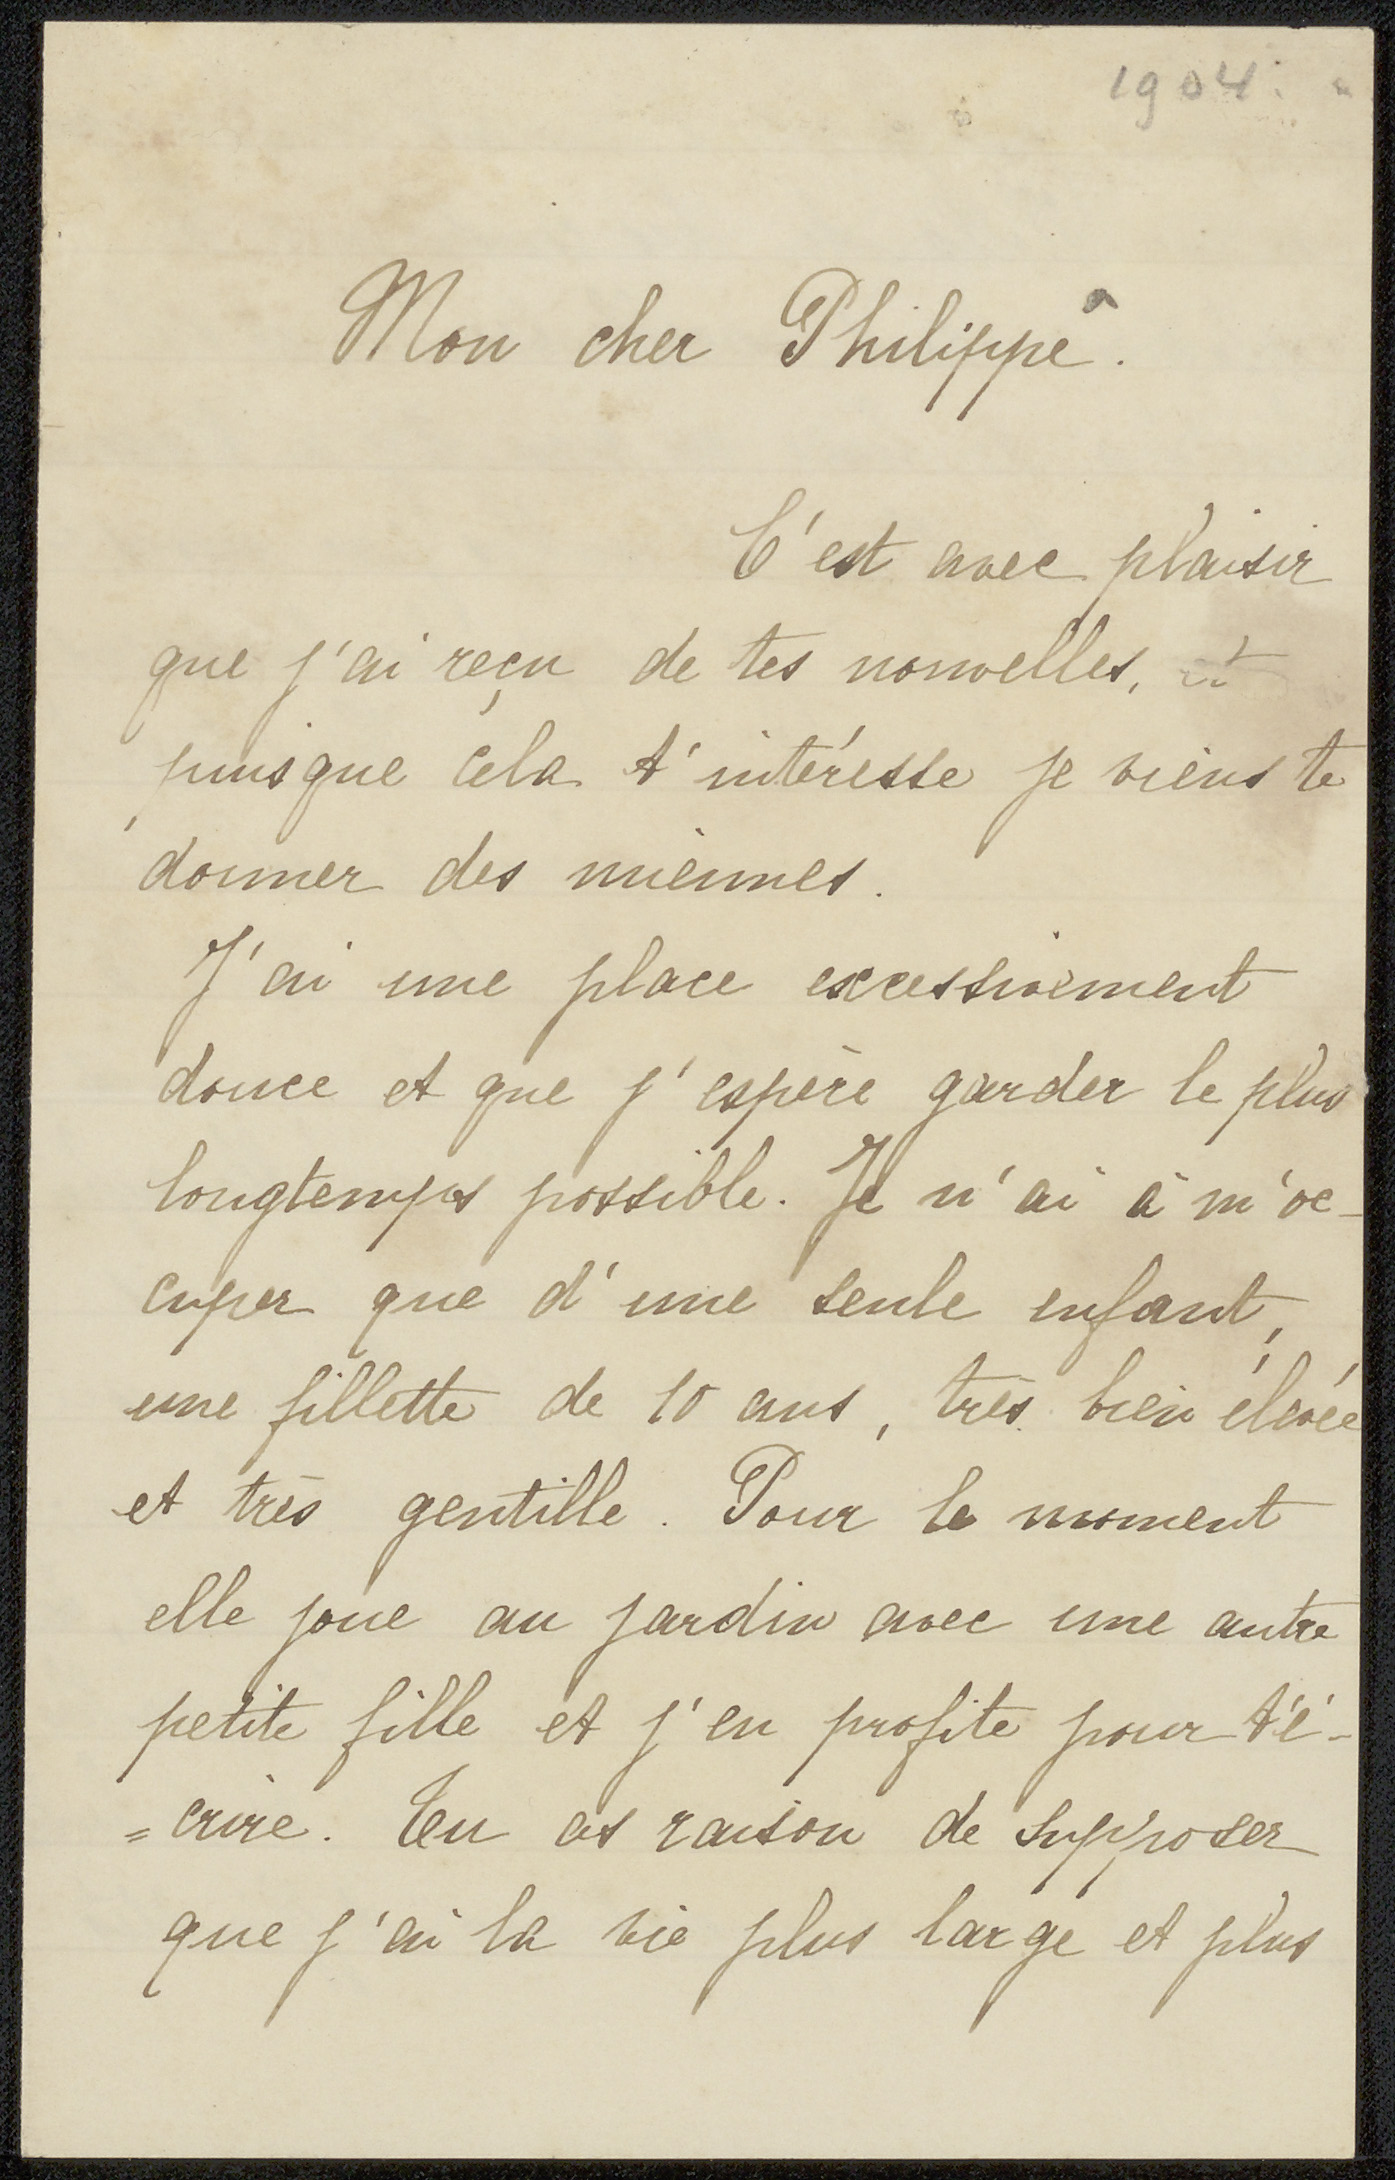 1904.
Mon cher Philippe.
C'est avec plaisir
que j'ai reçu de tes nouvelles, et
puisque cela t'intéresse je viens te
donner des miennes.
J'ai une place excessivement
douce et que j'espère garder le plus
longtemps possible. Je n'ai à m'oc-
cuper que d'une seule enfant,
une fillette de 10 ans, très bien élevée
et très gentille. Pour le moment
elle joue au jardin avec une autre
petite fille et j'en profite pour t'é-
=crire. Tu as raison de supposer
que j'ai la vie plus large et plus